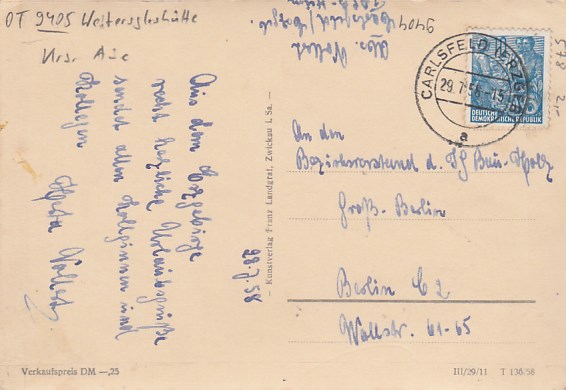 OT 9405 Weitersglashütte
Krs. Aue
Aus dem Erzgebirge
recht herzliche Urlaubsgrüße
sendet allen Kolleginnen und
Kollegen Herta Vollert
28.7.58
Abs. Vollert
9404
CARLSFELD (ERZGEB)
29.7.58.-15
a
DEUTSCHE
DEMOKRATISCHE REPUBLIK
578 2,-
An den
Bezirksvorstand d. IG Bau-Holz
Groß-Berlin
Berlin C 2
Wallstr. 61-65
— Kunstverlag Franz Landgraf, Zwickau i. Sa. —
Verkaufspreis DM —,25
III/29/11 T 136/58